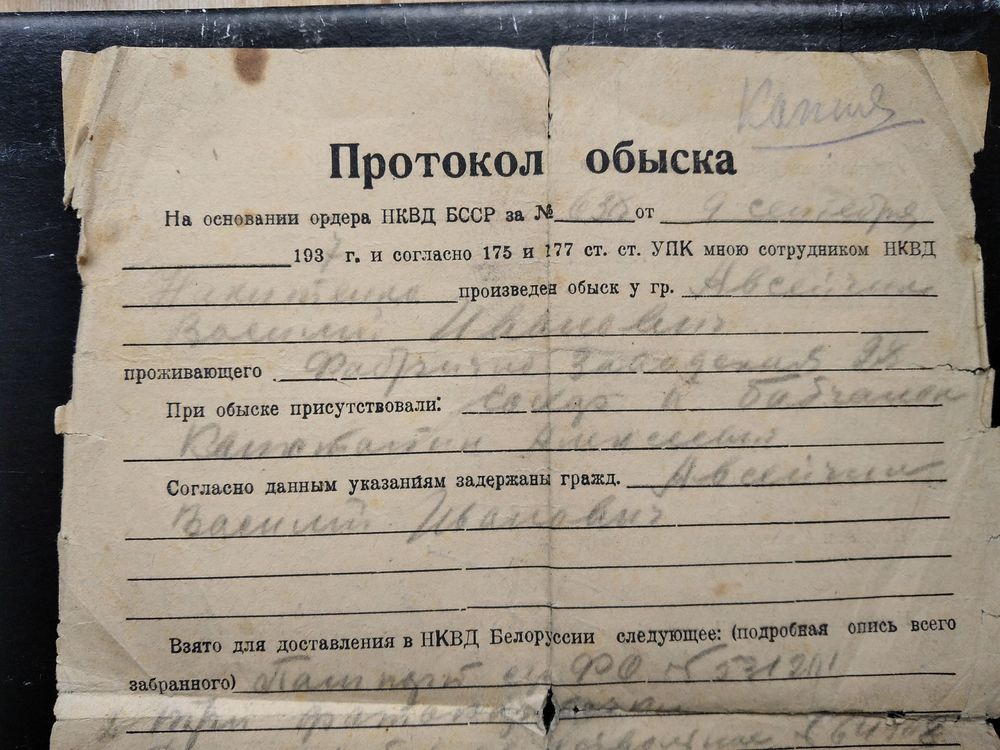 Копия
Протокол обыска
На основании ордера НКВД БССР за № от 9 сентября
1937 г. и согласно 175 и 177 ст. ст. УПК мною сотрудником НКВД
Никитенко произведен обыск у гр. Авсейчик
Василий Иванович
проживающего Фабрично Заводская
При обыске присутствовали:
Алексеевич
Согласно данным указаниям задержаны гражд. Авсейчик
Василий Иванович
Взято для доставления в НКВД Белоруссии следующее: (подробная опись всего
забранного) Паспорт